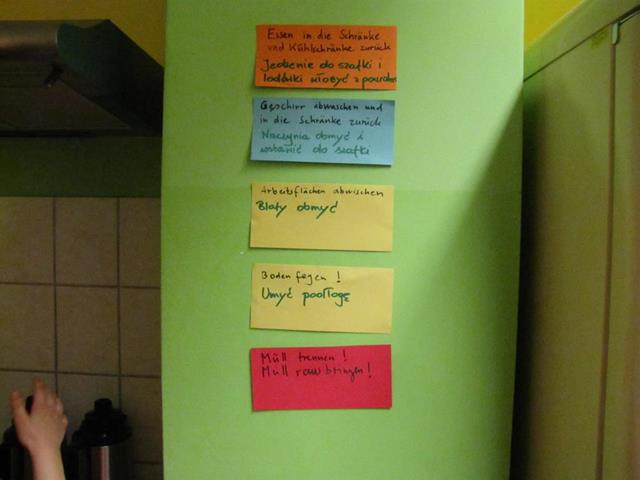 Essen in die Schränke
und Kühlschränke zurück
Jedzenie do szafki i
lodówki włożyć z powrotem
Geschirr abwaschen und
in die Schränke zurück
Naczynia obmyć i
wstawić do szafki
Arbeitsflächen abwischen
Blaty obmyć
Boden fegen !
Umyć podłogę
Müll trennen !
Müll rausbringen !